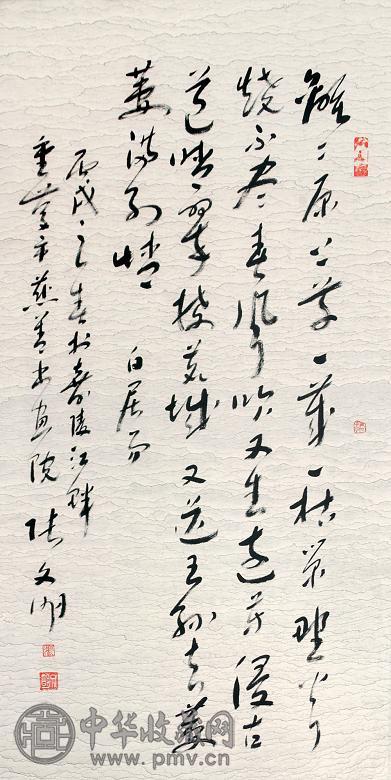 離〻原上草一歲一枯榮野火
燒不盡春風吹又生遠芳侵古
道晴翠接荒城又送王孫去萋
萋滿別情 白居易
丙戌之春於嘉陵江畔
重慶市慈善書畫院 张文明
中华收藏网
www.pmv.cn